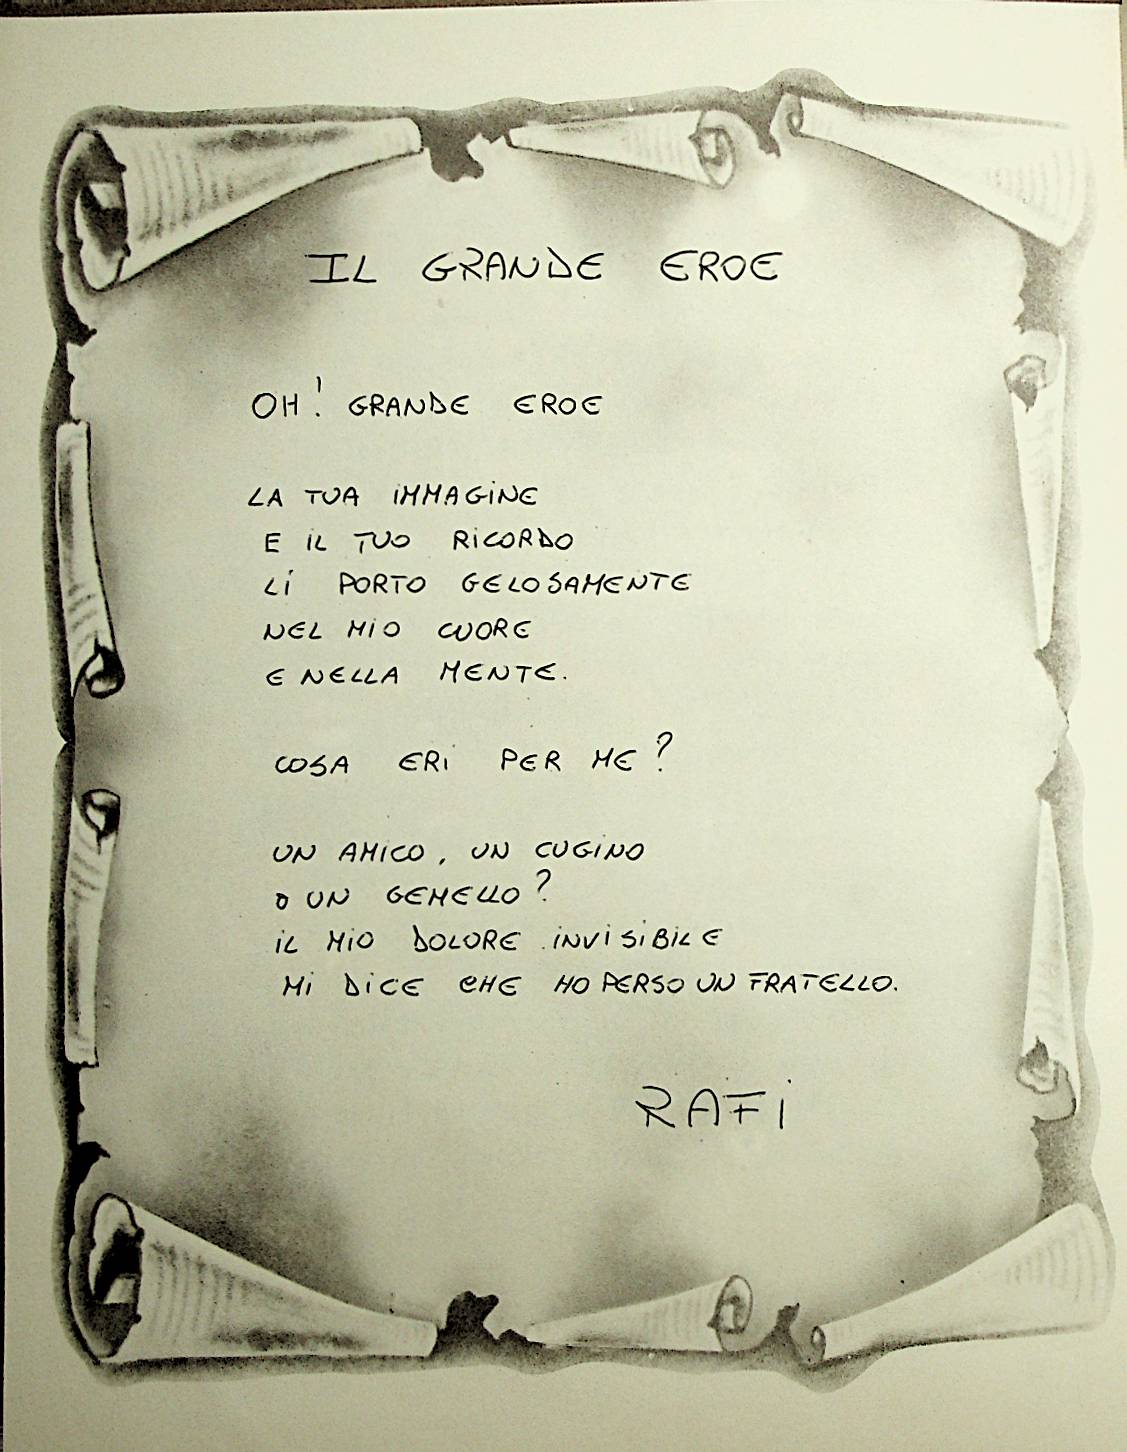 IL GRANDE EROE
OH! GRANDE EROE
LA TUA IMMAGINE
E IL TUO RICORDO
LÍ PORTO GELOSAMENTE
NEL MIO CUORE
E NELLA MENTE.
COSA ERI PER ME?
UN AMICO, UN CUGINO
O UN GEMELLO?
IL MIO DOLORE INVISIBILE
MI DICE CHE HO PERSO UN FRATELLO.
RAFI